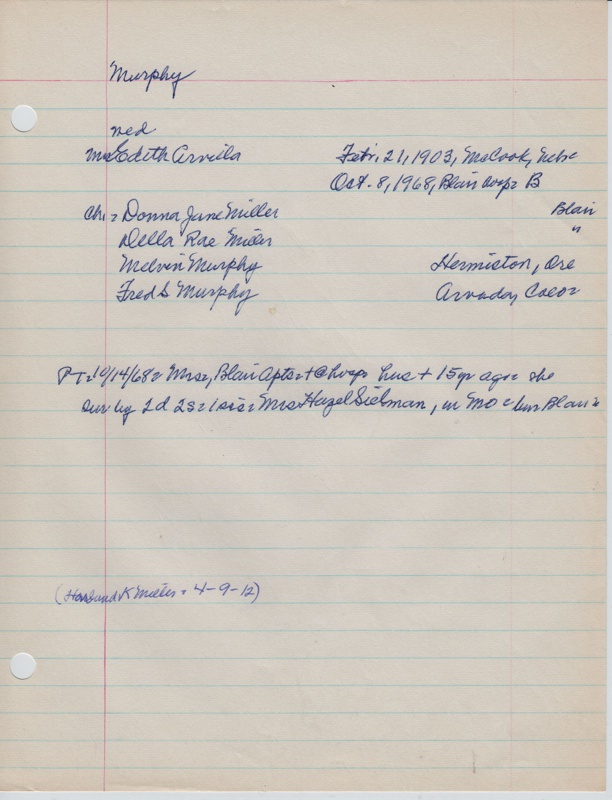 Murphy
wed
Mrs Edith Arvilla Feb. 21, 1903, McCook, Nebr
Oct. 8, 1968, Blair hosp= B
Ch= Donna Jane Miller Blair
Della Rae Miller "
Melvin Murphy Hermiston, Ore
Fred S Murphy Arvada, Colo=
PT=10/14/68= Mrs=, Blair Apts= + @ hosp= hus + 15 yr ago= she
sur by 2d 2s= 1 sis= Mrs Hazel Sielman, in MO= bur Blair=
(Harland K Miller = 4-9-12)